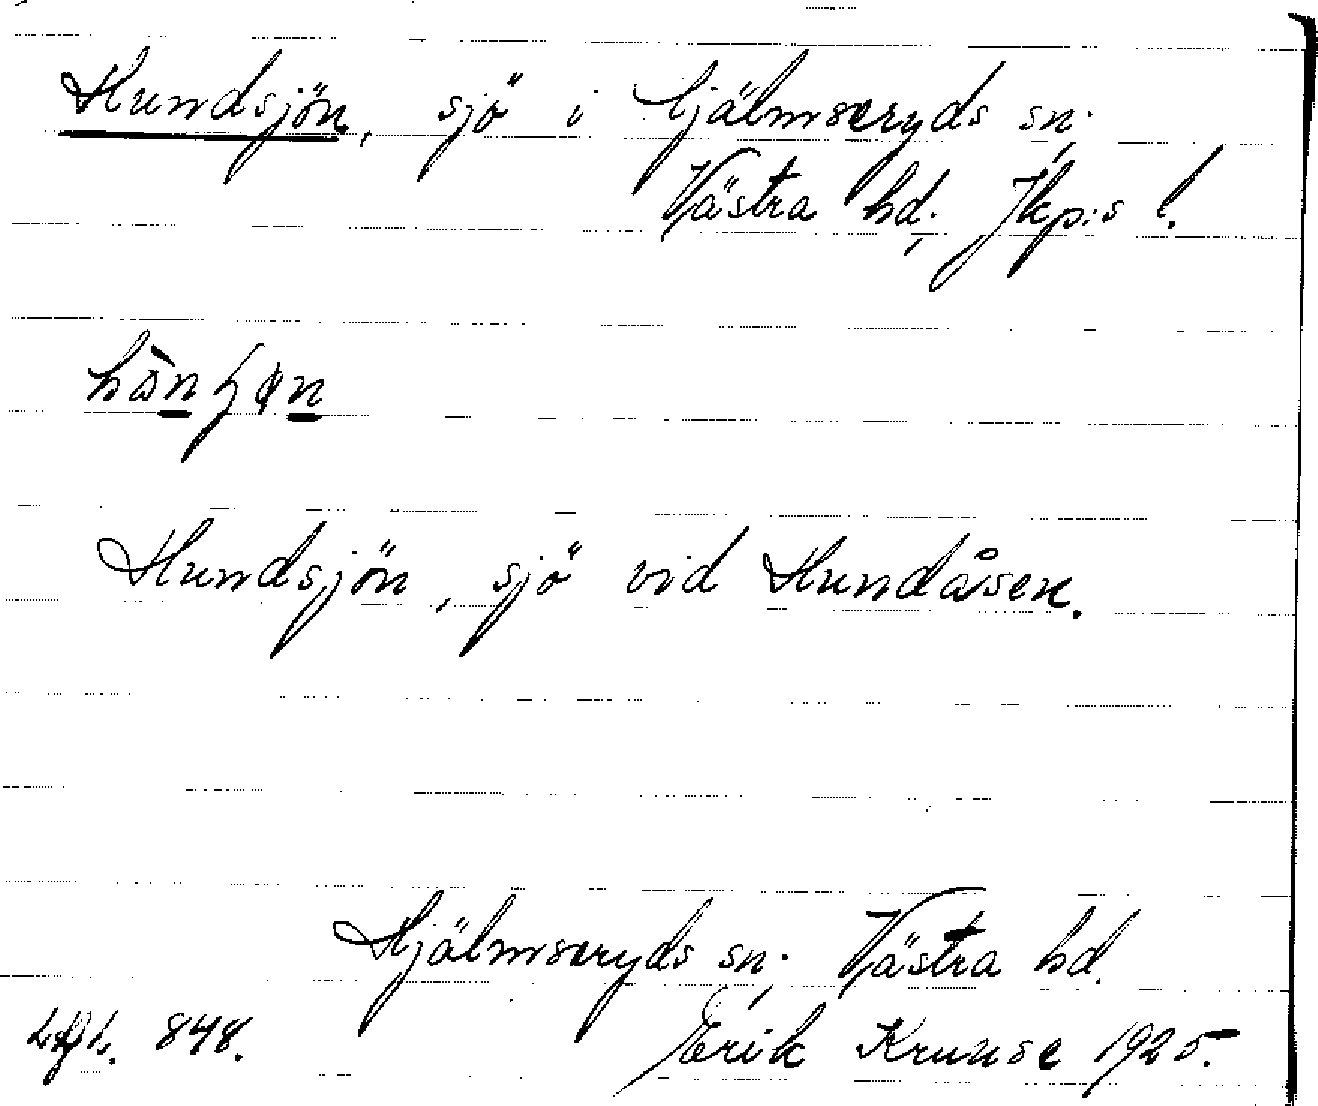 Hundsjön, sjö i Hjälmseryds sn.,
Västra hd., Jkp:s l.
Hundsjön, sjö vid Hundåsen.
Hjälmseryds sn., Västra hd.
848. Erik Kruuse 1925.